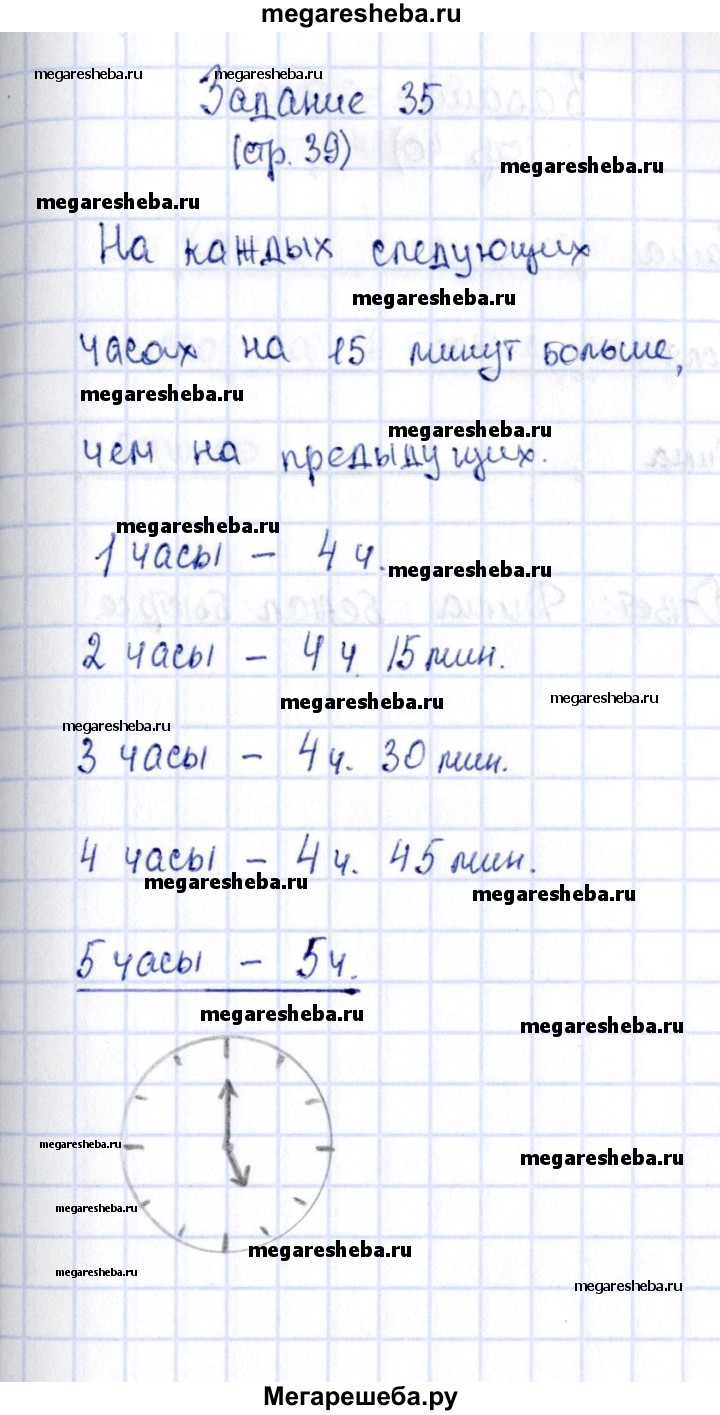 megaresheba.ru
megaresheba.ru
megaresheba.ru
Задание 35
(стр. 39)
megaresheba.ru
megaresheba.ru
На каждых следующих
megaresheba.ru
часах на 15 минут больше,
megaresheba.ru
megaresheba.ru
чем на предыдущих.
megaresheba.ru
1 часы – 4 ч.
megaresheba.ru
2 часы – 4 ч 15 мин.
megaresheba.ru
megaresheba.ru
megaresheba.ru
3 часы – 4 ч. 30 мин.
4 часы – 4 ч. 45 мин.
megaresheba.ru
megaresheba.ru
5 часы – 5 ч.
megaresheba.ru
megaresheba.ru
megaresheba.ru
megaresheba.ru
megaresheba.ru
megaresheba.ru
megaresheba.ru
megaresheba.ru
Мегарешеба.ру